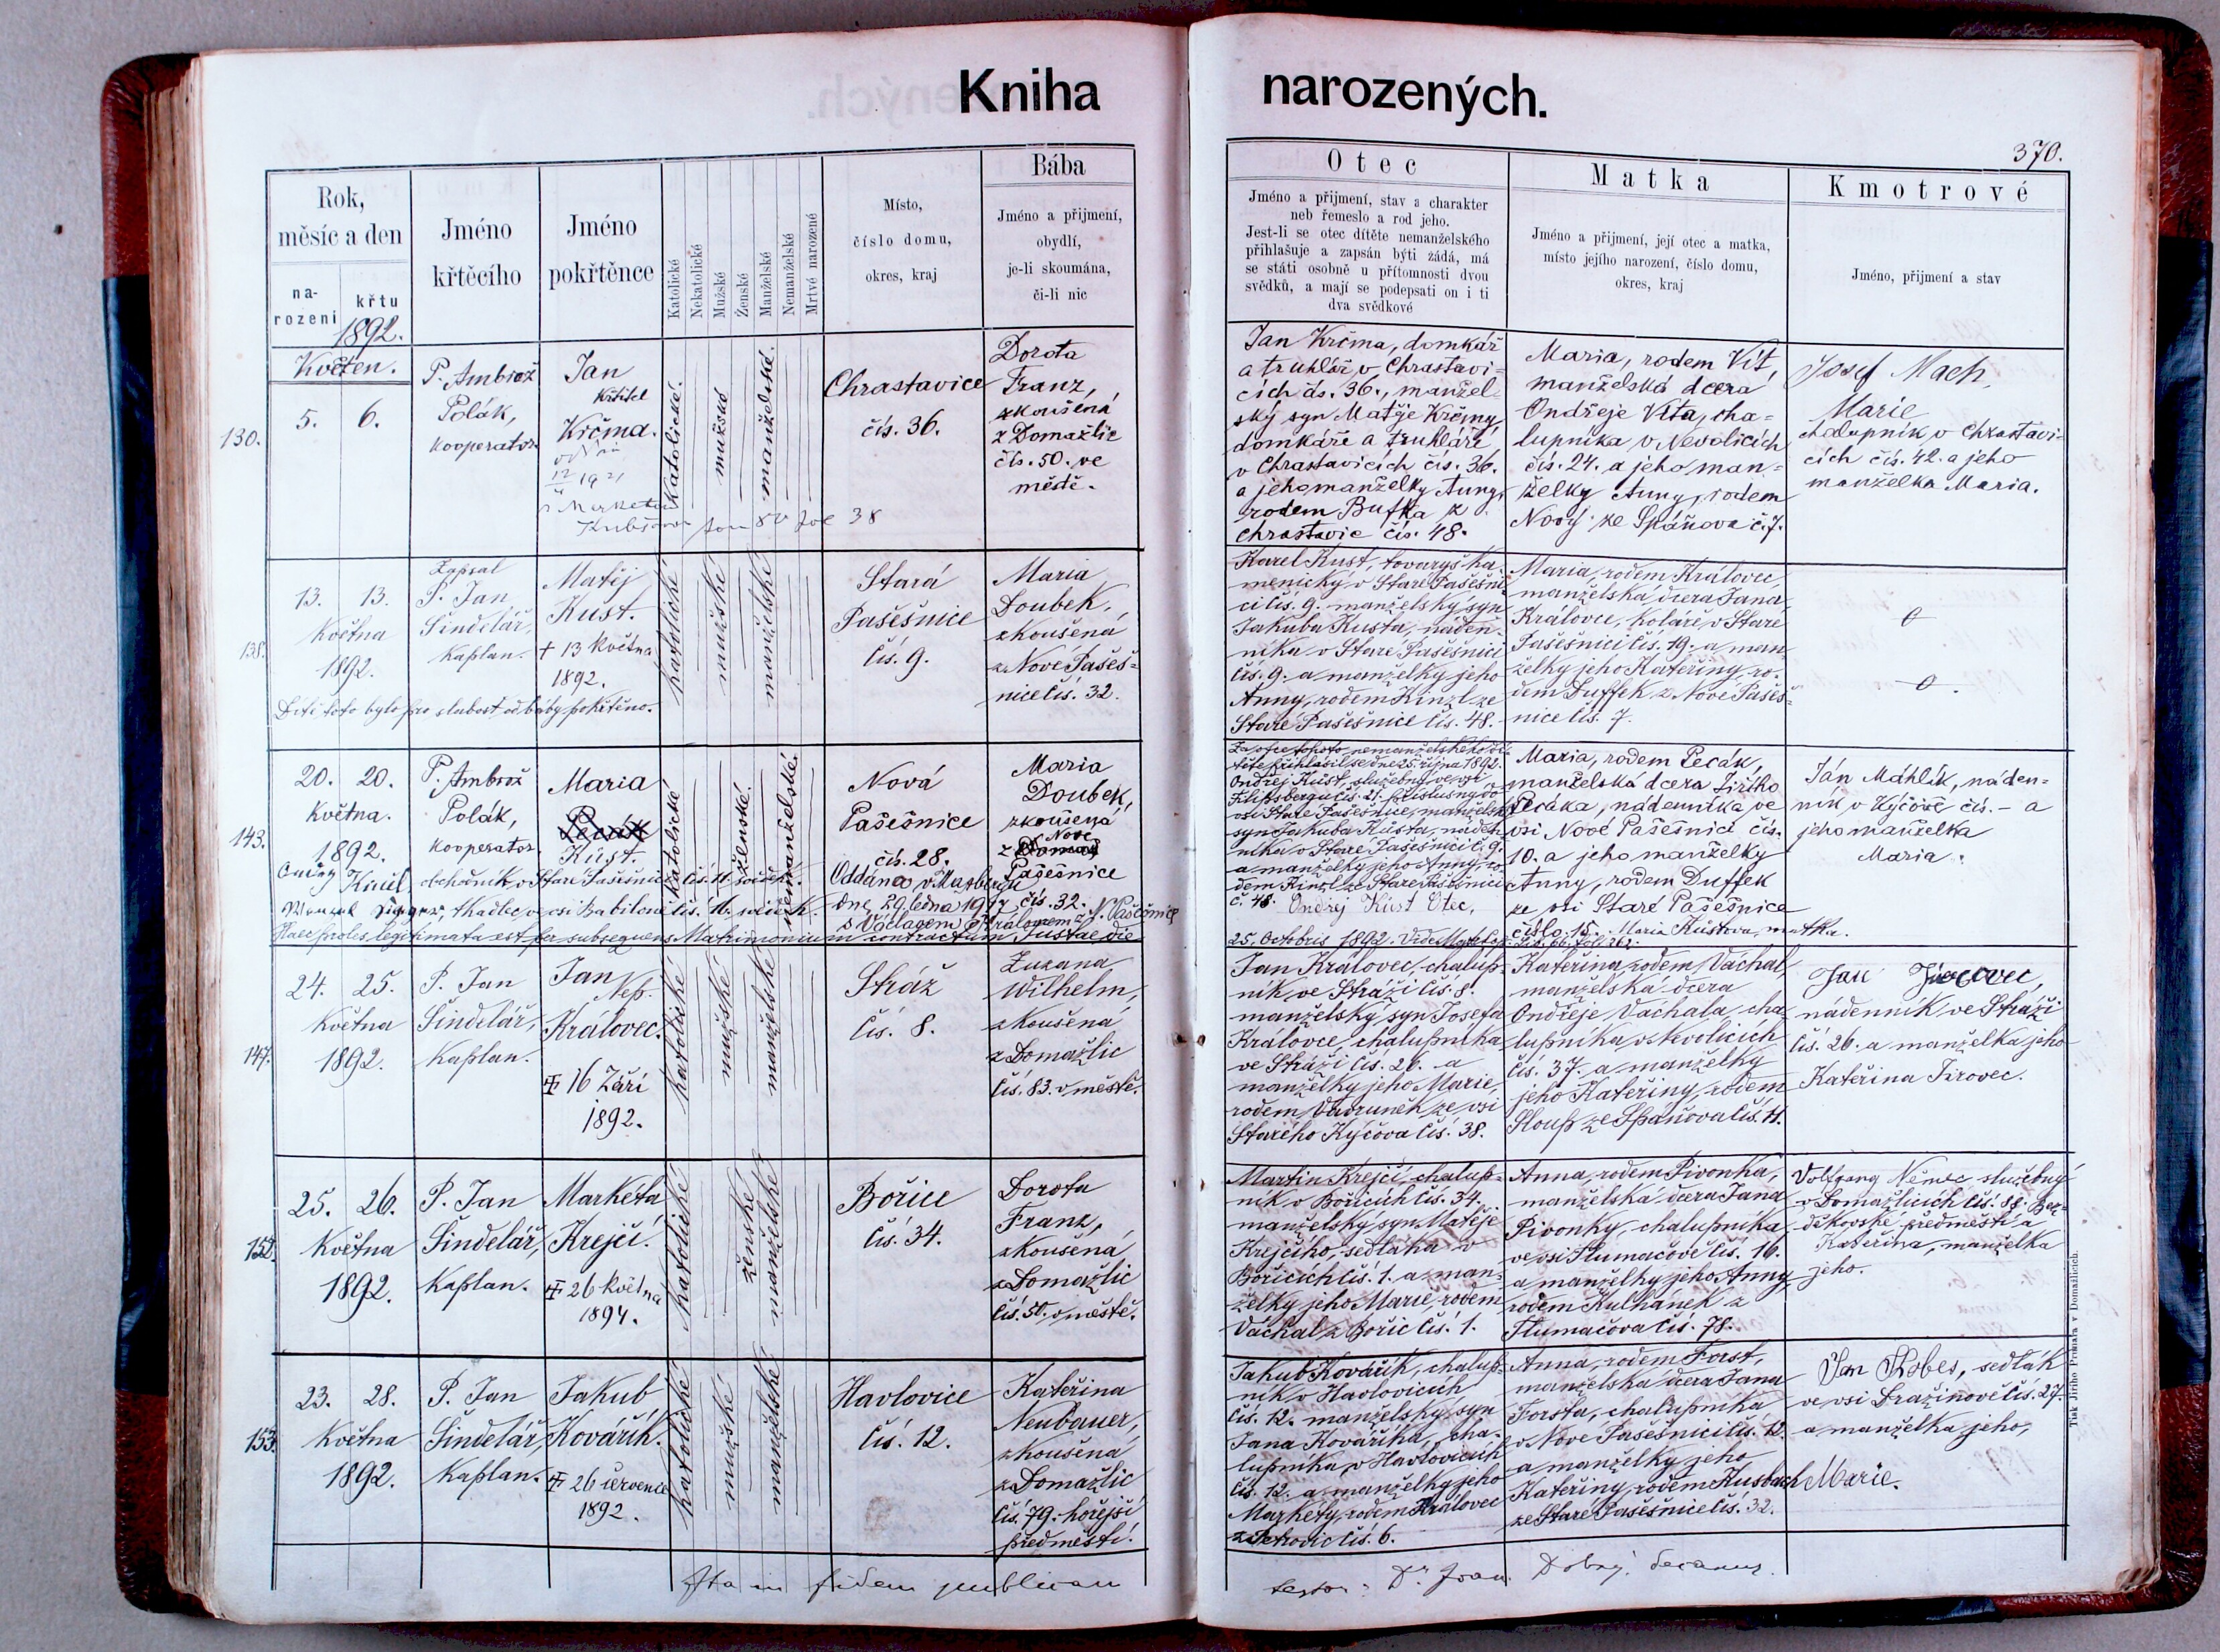 Kniha narozených.
370.
Rok,
měsíc a den
na-
rození
křtu
1892.
Jméno
křtěcího
Jméno
pokřtěnce
Katolické
Nekatolické
Mužské
Ženské
Manželské
Nemanželské
Mrtvé narozené
Místo,
číslo domu,
okres, kraj
Bába
Jméno a přijmení,
obydlí,
je-li skoumána,
či-li nic
Otec
Jméno a přijmení, stav a charakter
neb řemeslo a rod jeho.
Jest-li se otec dítěte nemanželského
přihlašuje a zapsán býti žádá, má
se státi osobně u přítomnosti dvou
svědků, a mají se podepsati on i ti
dva svědkové
Matka
Jméno a přijmení, její otec a matka,
místo jejího narození, číslo domu,
okres, kraj
Kmotrové
Jméno, přijmení a stav
Květen.
130.
5. 6.
P. Ambrož
Polák,
kooperator.
Jan
Křtitel
Krčma.
katolické.
mužské
manželské.
Chrastavice
čís. 36.
Dorota
Franz,
zkoušená
z Domažlic
čís. 50. ve
městě.
Jan Krčma, domkář
a truhlář v Chrastavi-
cích čís. 36., manžel-
ský syn Matěje Krčmy,
domkáře a truhláře
v Chrastavicích čís. 36.
a jeho manželky Anny,
rodem Bufka z
Chrastavic čís. 48.
Maria, rodem Vít,
manželská dcera
Ondřeje Víta, cha-
lupníka v Nevolicích
čís. 24. a jeho man-
želky Anny, rodem
Nový ze Spáňova č. 7.
Josef Mach,
Marie
chalupník v Chrastavi-
cích čís. 42. a jeho
manželka Maria.
138.
13. 13.
Května
1892.
Zapsal
P. Jan
Šindelář,
Kaplan.
Matěj
Kust.
+ 13 května
1892.
Dítě toto bylo pro slabost od báby pokřtěno.
katolické
mužské
manželské
Stará
Pašešnice
čís. 9.
Maria
Doubek,
zkoušená
z Nové Pašeš-
nice čís. 32.
Karel Kust, tovaryš ka-
menický v Staré Pašešni-
ci čís. 9. manželský syn
Jakuba Kusta, náden-
níka v Staré Pašešnici
čís. 9. a manželky jeho
Anny, rodem Kinzl ze
Staré Pašešnice čís. 48.
Maria, rodem Královec
manželská dcera Jana
Královce, koláře v Staré
Pašešnici čís. 19. a man-
želky jeho Kateřiny, ro-
dem Duffek z Nové Pašeš-
nice čís. 7.
143.
20. 20.
Května.
1892.
P. Ambrož
Polák,
kooperator.
Maria
Pecák
Küst.
katolické
ženské.
nemanželské.
Nová
Pašešnice
čís. 28.
Maria
Doubek,
zkoušená
z Nové
Pašešnice
čís. 32.
Oddána v
dne 29. ledna 1917
s Václavem Královcem z N. Pašešnice
Haec proles legitimata est per subsequens Matrimonium contractum Tustae die
25. Octobris 1892.
Za otce tohoto nemanželského dí-
těte přihlásil se dne 25. října 1892.
Ondřej Küst, služebný ve vsi
Filipsbergu čís. 21. příslušný do
vsi Staré Pašešnice, manželský
syn Jakuba Küsta, náden-
níka v Staré Pašešnici č. 9.
a manželky jeho Anny, ro-
dem Kinzl ze Staré Pašešnice
č. 48. Ondřej Küst Otec,
Maria, rodem Pecák,
manželská dcera Jiřího
Pecáka, nádenníka ve
vsi Nové Pašešnici čís.
10. a jeho manželky
Anny, rodem Duffek
ze vsi Staré Pašešnice
číslo 15. Maria Küstova, matka.
Ján Máhlík, náden-
ník v Kýčově čís. – a
jeho manželka
Maria.
147.
24. 25.
Května
1892.
P. Jan
Šindelář,
Kaplan.
Jan
Nep.
Královec.
16 Září
1892.
katolické
mužské
manželské
Stráž
čís. 8.
Zuzana
Wilhelm,
zkoušená
z Domažlic
čís. 83. v městě.
Jan Královec, chalup-
ník ve Stráži čís. 8.
manželský syn Josefa
Královce, chalupníka
ve Stráži čís. 26. a
manželky jeho Marie,
rodem Vavruněk ze vsi
Starého Kýčova čís. 38.
Kateřina, rodem Váchal,
manželská dcera
Ondřeje Váchala, cha-
lupníka v Nevolicích
čís. 37. a manželky
jeho Kateřiny, rodem
Sloup ze Spáňova čís. 11.
Jan Jirovec,
nádenník ve Stráži
čís. 26. a manželka jeho
Kateřina Jirovec.
152.
25. 26.
Května
1892.
P. Jan
Šindelář,
Kaplan.
Markéta
Krejčí.
26 května
1894.
katolické
ženské
manželské
Bořice
čís. 34.
Dorota
Franz,
zkoušená
z Domažlic
čís. 50. v městě.
Martin Krejčí, chalup-
ník v Bořicích čís. 34.
manželský syn Matěje
Krejčího, sedláka v
Bořicích čís. 1. a man-
želky jeho Marie, rodem
Váchal z Bořic čís. 1.
Anna, rodem Pivonka,
manželská dcera Jana
Pivonky, chalupníka
ve vsi Tlumačově čís. 16.
a manželky jeho Anny,
rodem Kulhánek z
Tlumačova čís. 78.
Volfgang Němec, služebný
v Domažlicích čís. 88. Bez-
děkovské předměstí a
Kateřina, manželka
jeho.
153.
23. 28.
Května
1892.
P. Jan
Šindelář,
Kaplan.
Jakub
Kovářík.
26 července
1892.
katolické
mužské
manželské
Havlovice
čís. 12.
Kateřina
Neubauer,
zkoušená
z Domažlic
čís. 79. hořejší
předměstí.
Jakub Kovářík, chalup-
ník v Havlovicích
čís. 12. manželský syn
Jana Kováříka, cha-
lupníka v Havlovicích
čís. 12. a manželky jeho
Markéty, rodem Královec
čís. 6.
Anna, rodem Forst,
manželská dcera Jana
Forsta, chalupníka
v Nové Pašešnici čís. 12.
a manželky jeho
Kateřiny, rodem Kusbach
ze Staré Pašešnice čís. 32.
Jan Kobes, sedlák
ve vsi Dražinově čís. 27.
a manželka jeho,
Marie.
Ita in fidem publicam
testor: Dr. Joan. Dobrý, decanus.
Tisk Jiřího Prunara v Domažlicích.